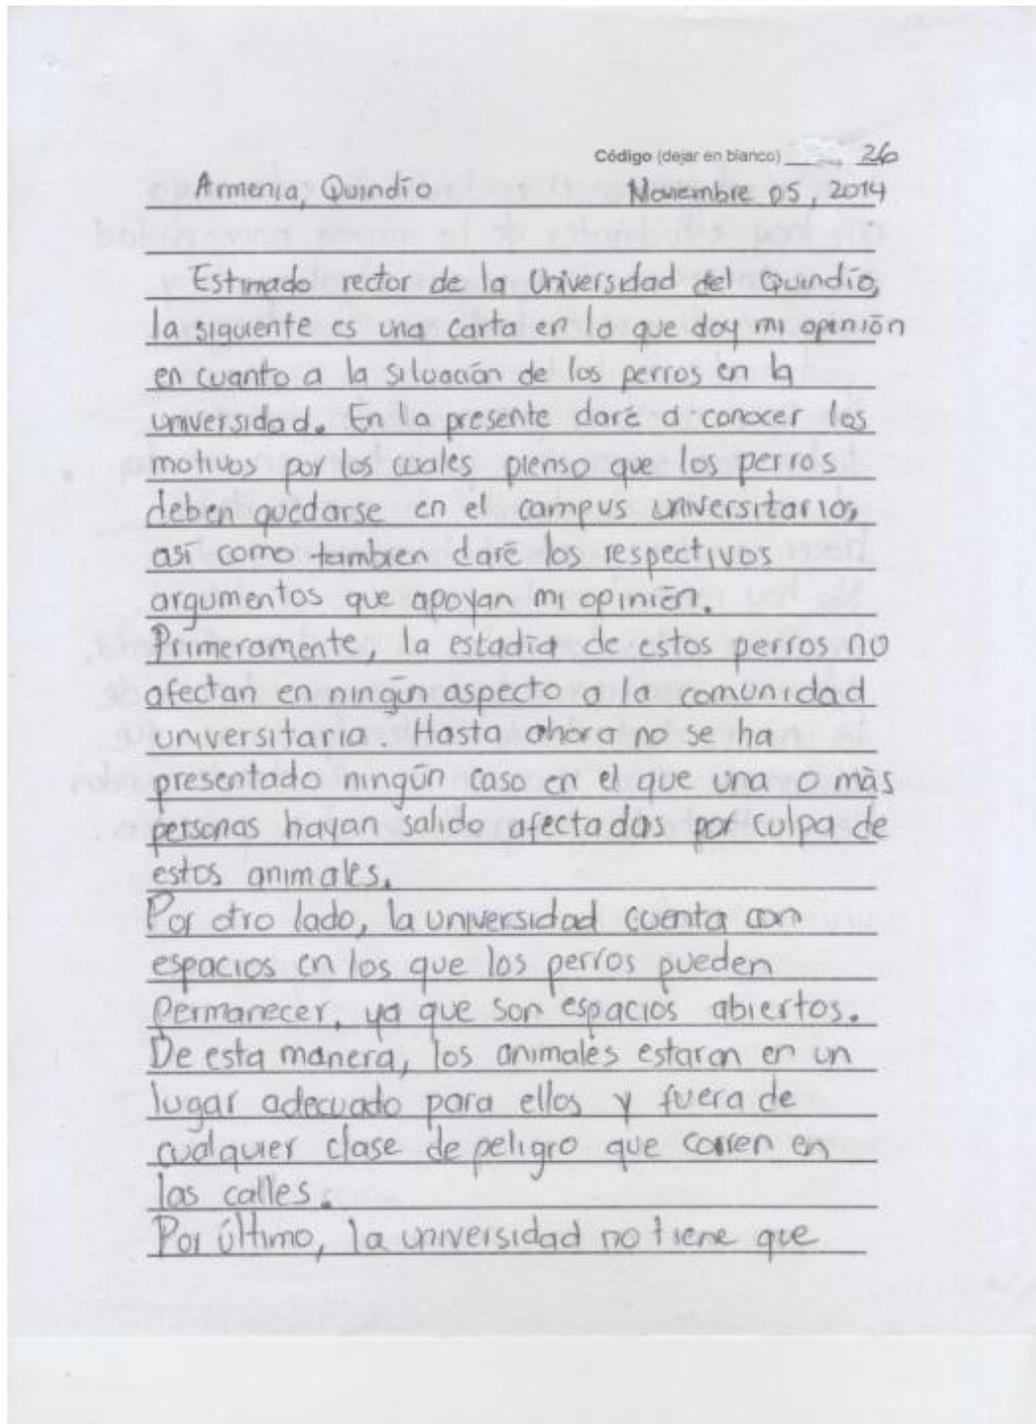 Código (dejar en blanco) 26
Armenia, Quindío Noviembre 05, 2014
Estimado rector de la Universidad del Quindío,
la siguiente es una carta en la que doy mi opinión
en cuanto a la situación de los perros en la
universidad. En la presente daré a conocer los
motivos por los cuales pienso que los perros
deben quedarse en el campus universitarios,
así como tambien daré los respectivos
argumentos que apoyan mi opinión.
Primeramente, la estadía de estos perros no
afectan en ningún aspecto a la comunidad
universitaria. Hasta ahora no se ha
presentado ningún caso en el que una o más
personas hayan salido afectadas por culpa de
estos animales.
Por otro lado, la universidad cuenta con
espacios en los que los perros pueden
permanecer, ya que son espacios abiertos.
De esta manera, los animales estaran en un
lugar adecuado para ellos y fuera de
cualquier clase de peligro que corren en
las calles.
Por último, la universidad no tiene que